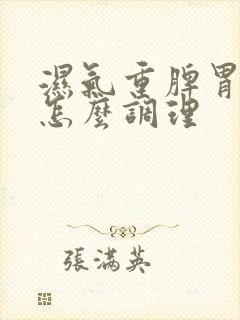 濕氣重脾胃
怎麼調理
張滿英